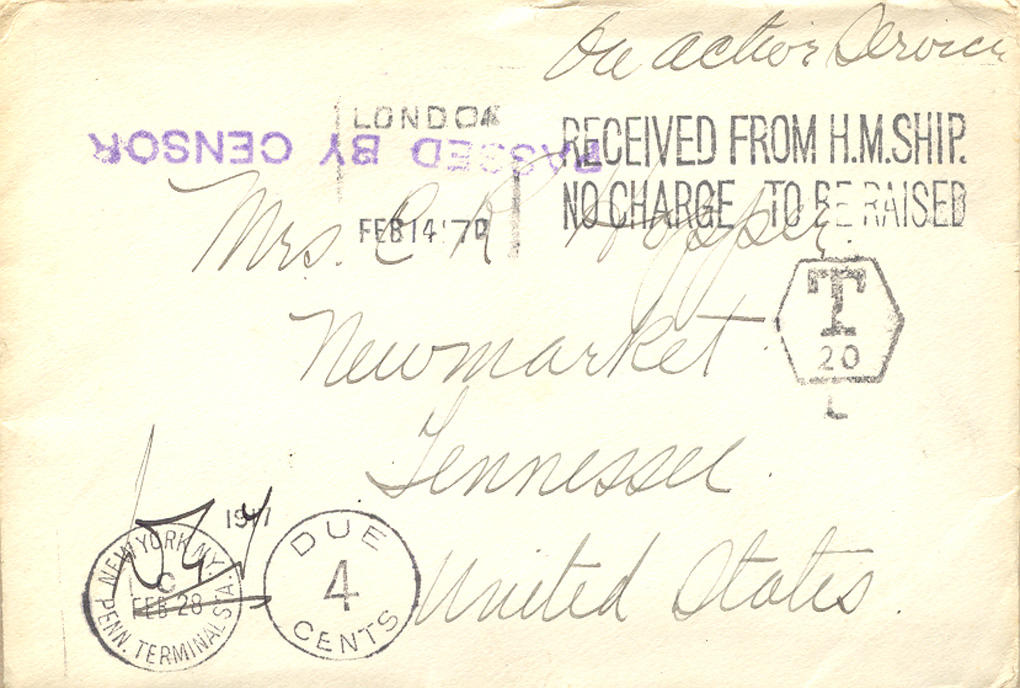 On active Service
LONDON
RECEIVED FROM H.M.SHIP.
PASSED BY CENSOR
NO CHARGE TO BE RAISED
FEB 14
Mrs. C R Hopper.
T
20
L
Newmarket
Tennessee.
1917
DUE
4
CENTS
NEW YORK N.Y.
C
FEB 28
PENN. TERMINAL STA.
United States.